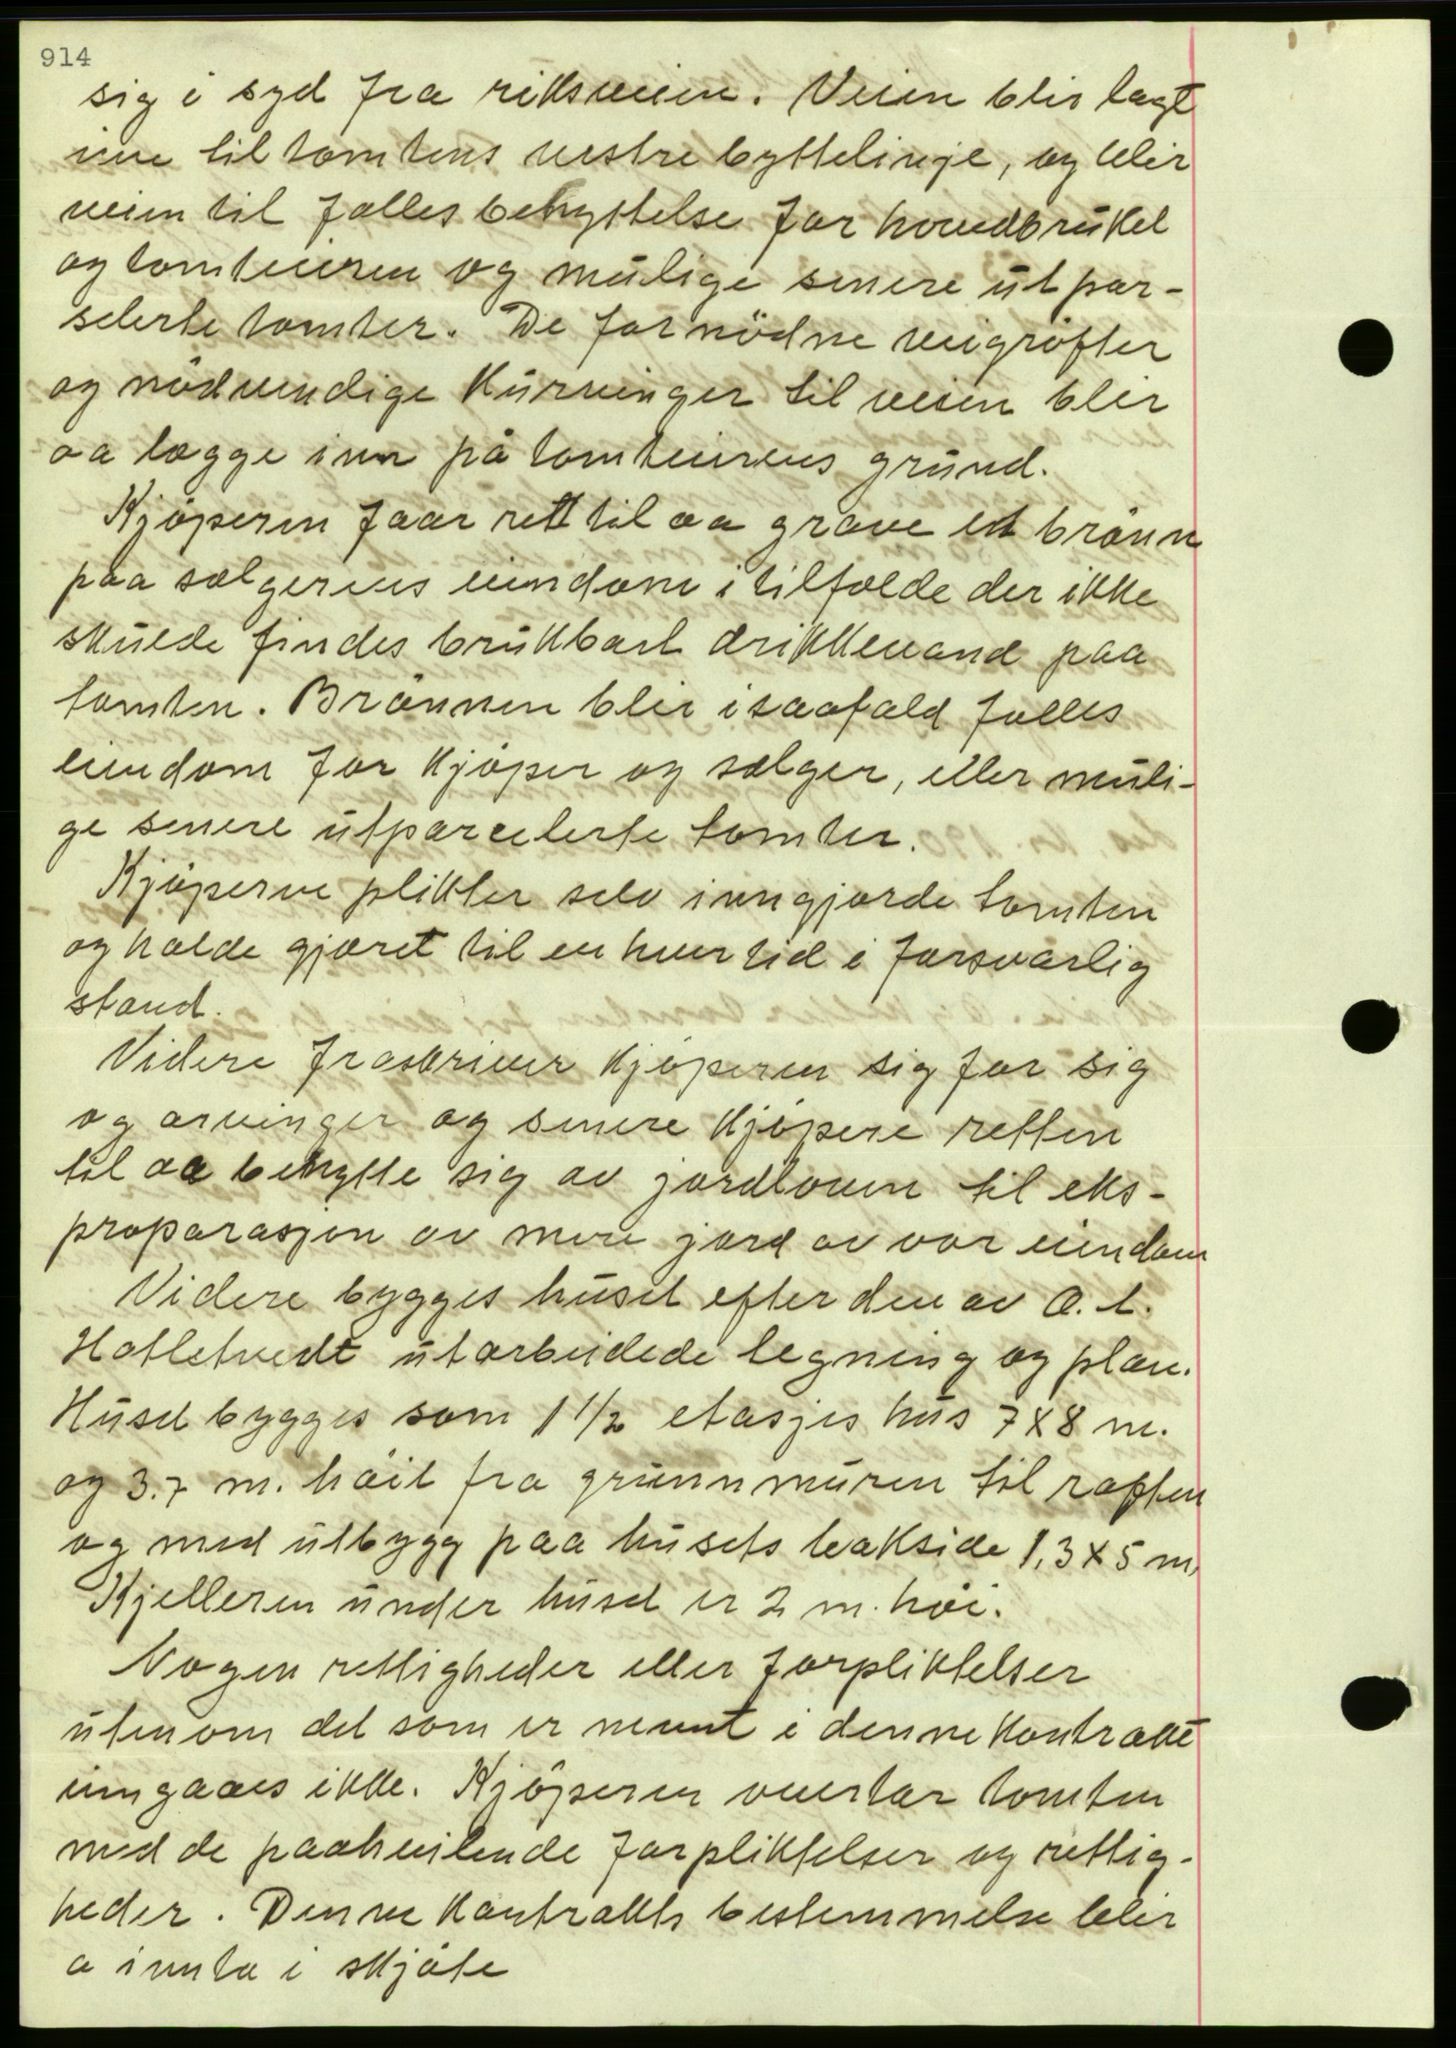 914
sig i syd fra riksveien. Veien blir lagt
inne til tomtens vestre byttelinje, og blir
veien til fælles behyttelse for hovedbruket
og tomteieren og mulige senere utpar-
selerte tomter. De fornødne veigrøfter
og nødvendige kurvinger til veien blir
aa lægge inn på tomteierens grund.
Kjøperen faar rett til aa grave en brønn
paa sælgerens eiendom i tilfælde der ikke
skulde findes brukbart drikkevand paa
tomten. Brønnen blir isaafald fælles
eiendom for kjøper og sælger, eller muli-
ge senere utparcelerte tomter.
Kjøperne plikter selv inngjærde tomten
og holde gjæret til en hver tid i forsvarlig
stand.
Videre fraskriver kjøperen sig for sig
og arvinger og senere kjøpere retten
til aa behytte sig av jordloven til eks-
proparasjon av mere jord av vor eiendom
Videre bygges huset efter den av O. L.
Hatletvedt utarbeidede tegning og plan.
Huset bygges som 1 1/2 etasjes hus 7 x 8 m.
og 3.7 m. høit fra grunnmuren til raften
og med utbygg paa husets bakside 1,3 x 5 m,
Kjelleren under huset er 2 m. høi.
Nogen rettigheder eller forpliktelser
utenom det som er nevnt i denne kontrakt
inngaaes ikke. Kjøperen overtar tomten
med de paahvilende forpliktelser og rettig-
heder. Denne kontrakts bestemmelse blir
a innta i skjøte